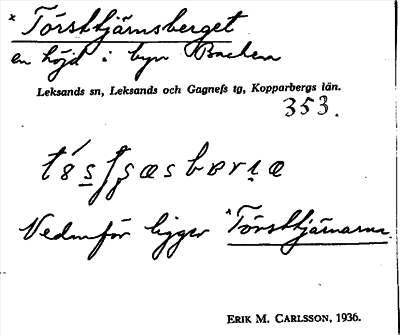 * Torsttjärnsberget
en höjd i byn Backen
Leksands sn, Leksands och Gagnefs tg, Kopparbergs län.
353.
Nedanför ligger *Torsttjärnarna.
ERIK M. CARLSSON, 1936.